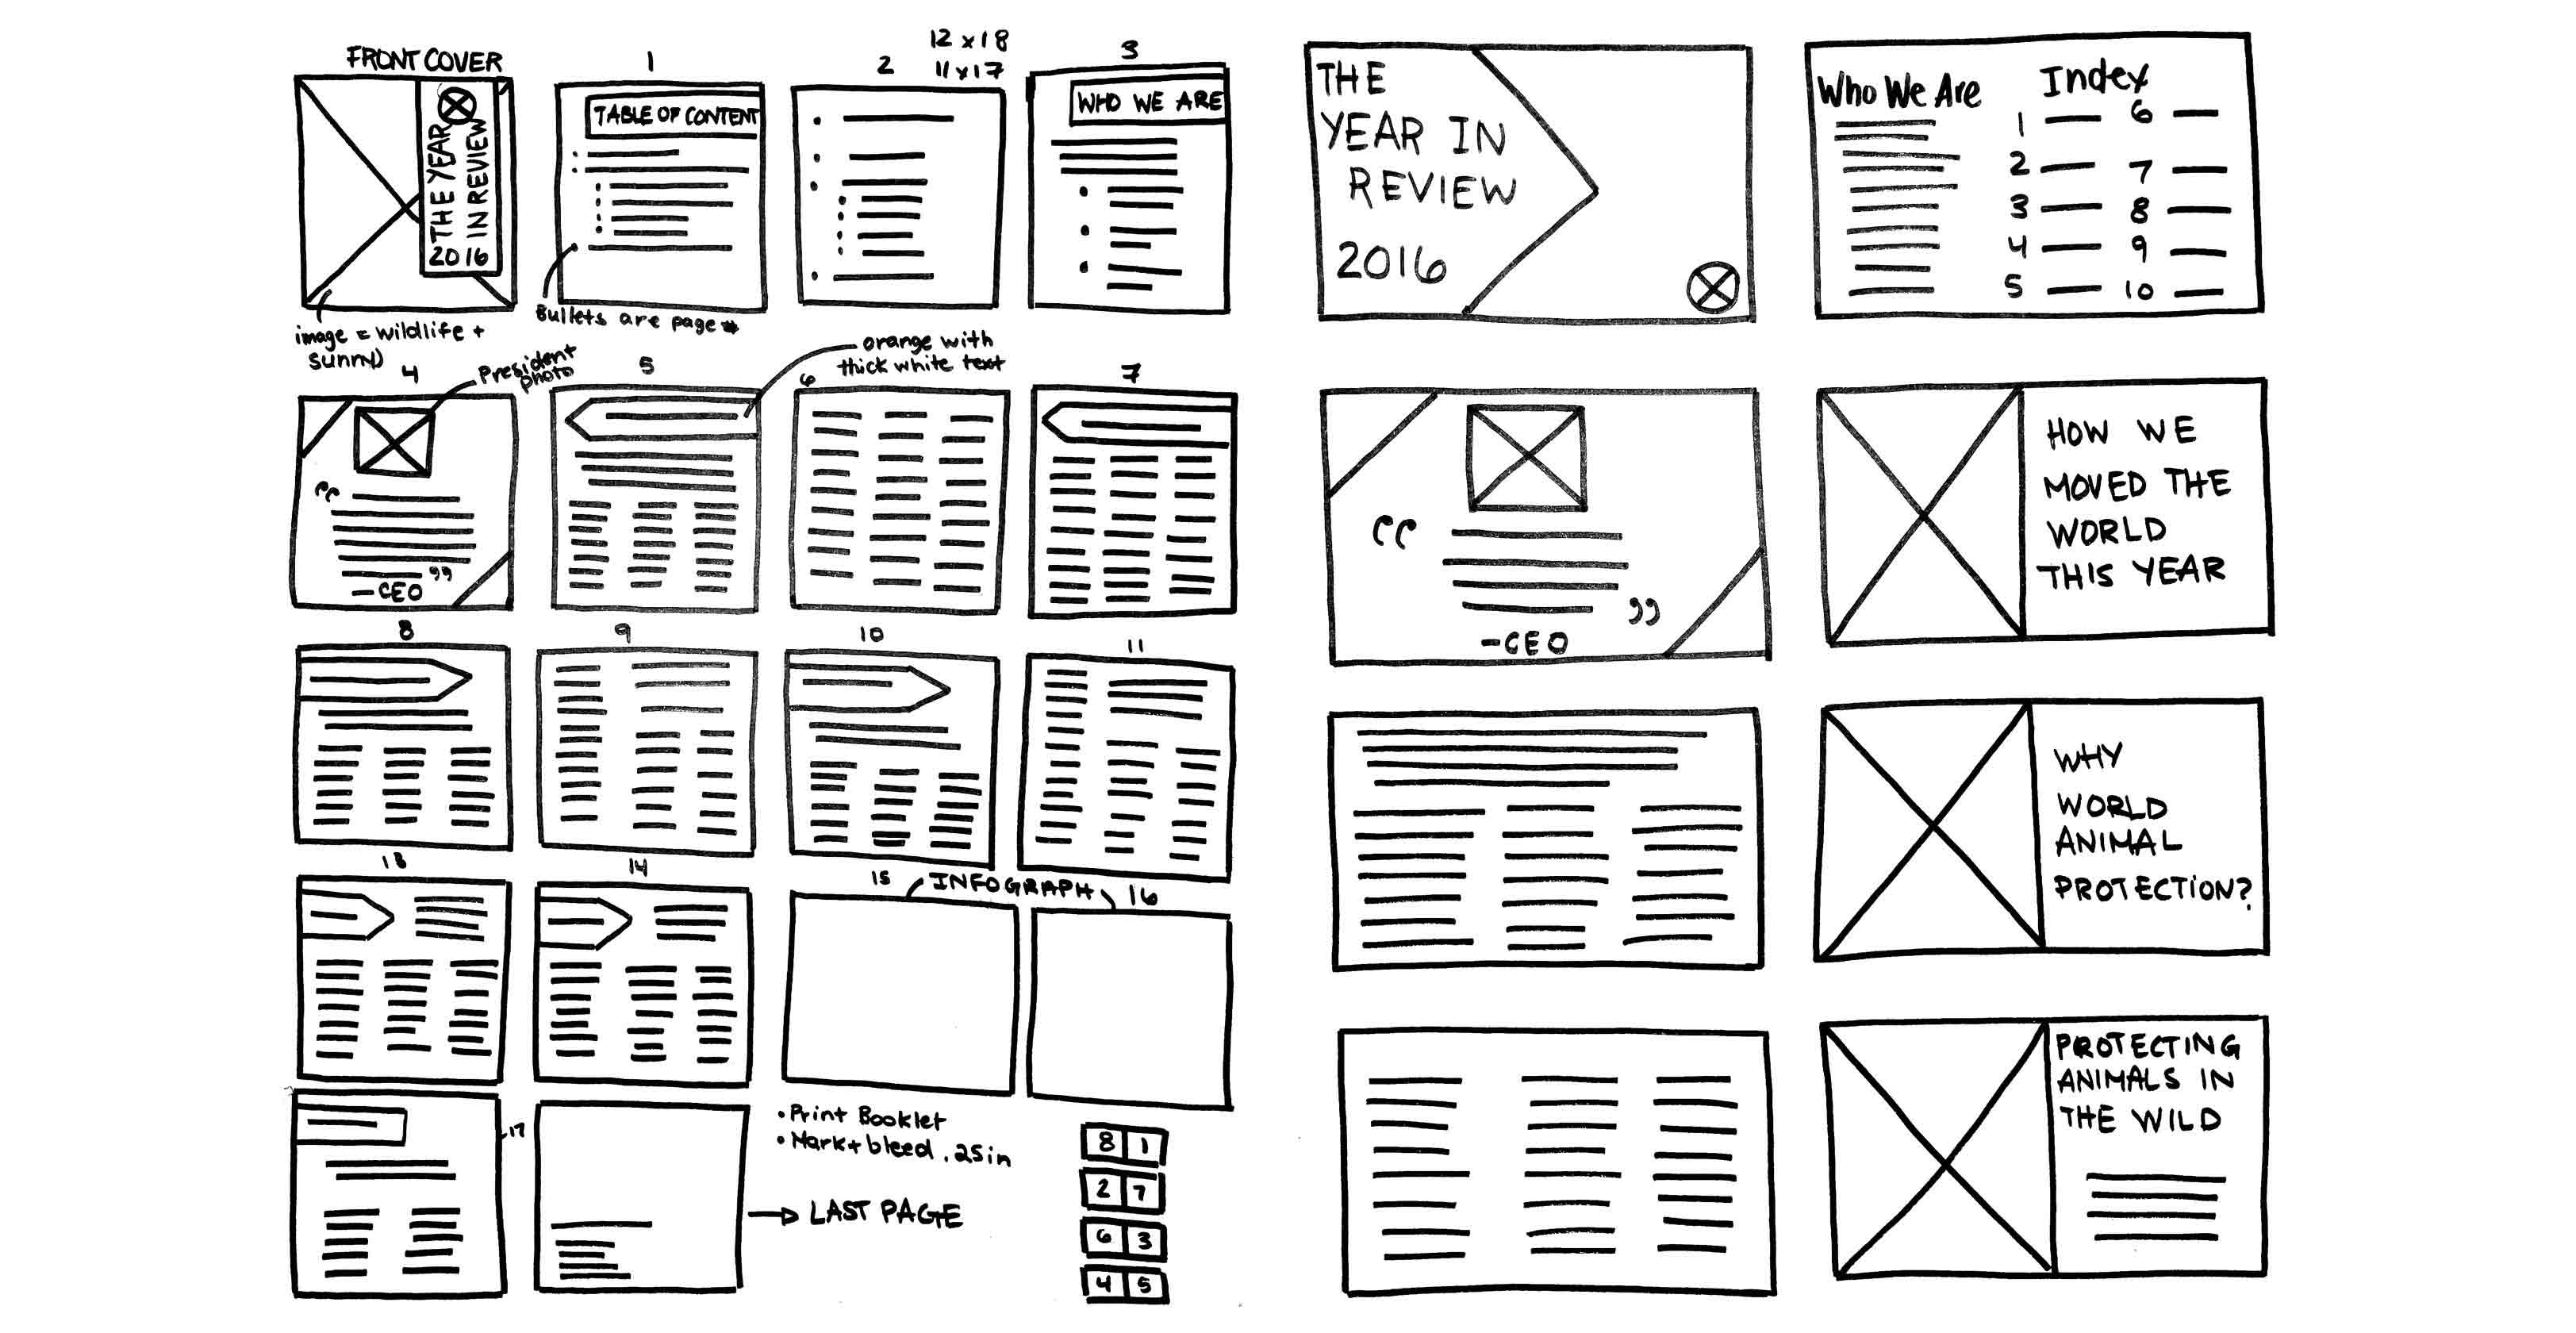 FRONT COVER
THE YEAR
IN REVIEW
2016
image = wildlife +
sunny
1
TABLE OF CONTENT
Bullets are page #
2
12 x 18
11 x 17
3
WHO WE ARE
4
President
photo
“
”
-CEO
5
orange with
thick white text
6
7
8
9
10
11
13
14
15
INFOGRAPH
16
17
LAST PAGE
• Print Booklet
• Mark + bleed .25in
8 1
2 7
6 3
4 5
THE
YEAR IN
REVIEW
2016
Who We Are
Index
1
2
3
4
5
6
7
8
9
10
“
”
-CEO
HOW WE
MOVED THE
WORLD
THIS YEAR
WHY
WORLD
ANIMAL
PROTECTION?
PROTECTING
ANIMALS IN
THE WILD